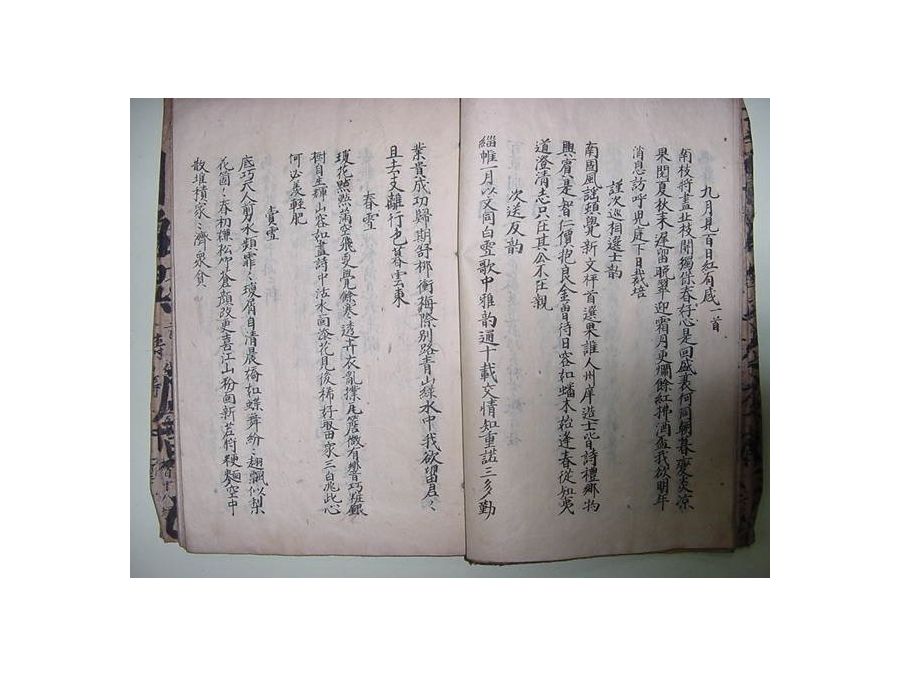 九月見百日紅有感一首
南枝將盡北枝開獨保春好心是回盛衰何同朝暮變炎凉
果閱夏秋末遲留晩翠迎霜月更爛餘紅拂酒盃我欲明年
消息訪呼児庭下日栽培
謹次巡相選士韻
南國風謠頓覺新文枰首選果誰人州庠造士皆詩禮鄉物
興賓是智仁價抱良金曾待日容如蟠木始逢春從知夷
道澄清志只在其公不在親
次送友韻
緇帷一月以文同白雪歌中雅韻通十載交情知重諾三多勤
業貴成功歸期舒柳衝梅際別路青山綠水中我欲留君〻
且去支離行色暮雲東
春雪
瓊花點點滿空飛更無餘寒透卉衣亂撲瓦簷微有響巧粧銀
樹自生輝山容如畫詩中活水面添花見後稀好取田家三白兆此心
何必羡輕肥
賞雪
底巧天人剪水類霏〻瓊屑自清晨橋如蝶舞紛〻翅飄似梨
花箇〻春初嫌松仰蒼顏改更喜江山粉面新若將粳麵空中
散堆積家〻濟衆貧